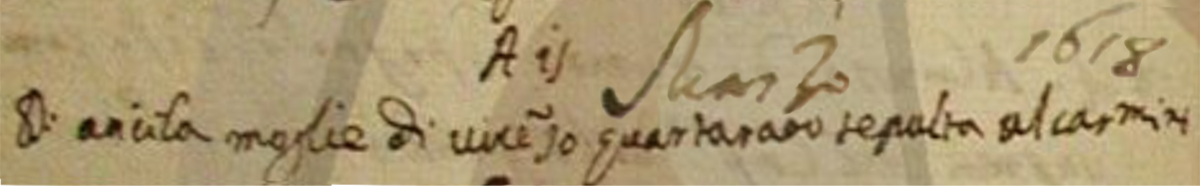 A 15 Marzo 1618
Di anciła moglie di vicẽzo quartararo sepulta al carmini